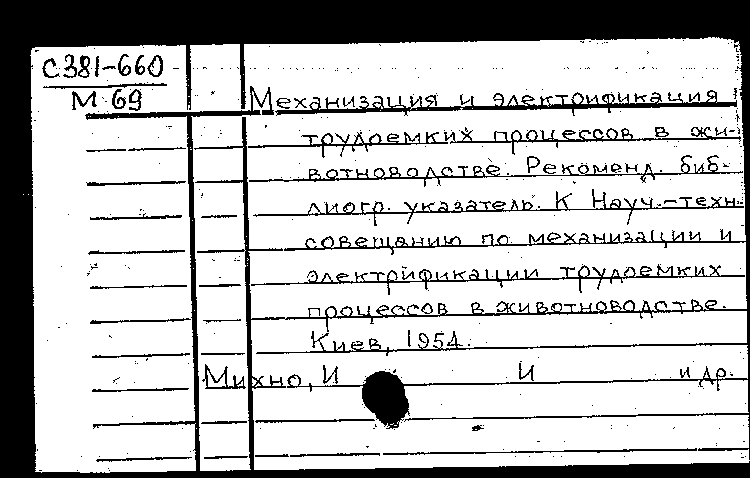 С381-660
М 69
Механизация и электрификация
трудоемких процессов в жи-
вотноводстве. Рекоменд. биб-
лиогр. указатель. К Науч.-техн.
совещанию по механизации и
электрификации трудоемких
процессов в животноводстве.
Киев, 1954.
Михно, И И и др.